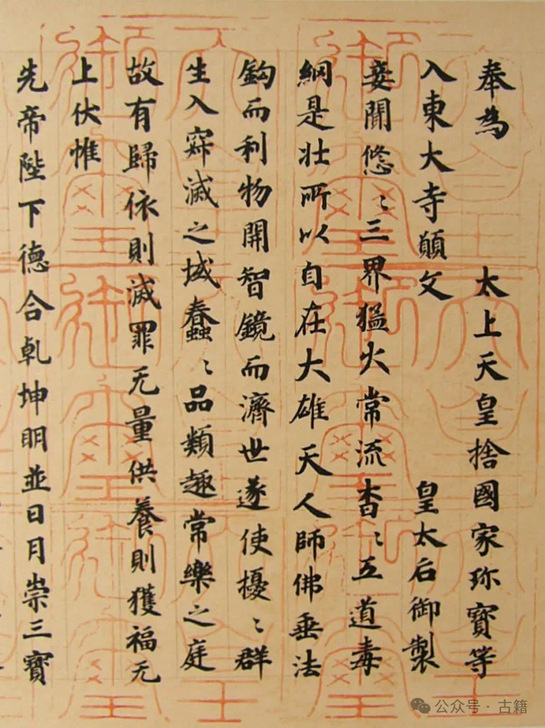 奉為　太上天皇捨國家珎寶等
入東大寺願文　皇太后御製
妾聞悠〻三界猛火常流杳〻五道毒
網是壮所以自在大雄天人師佛垂法
鈎而利物開智鏡而濟世遂使擾〻群
生入寂滅之域蠢〻品類趣常樂之庭
故有歸依則滅罪无量供養則獲福无
上伏惟
先帝陛下德合乾坤明並日月崇三寶
公众号 · 古籍